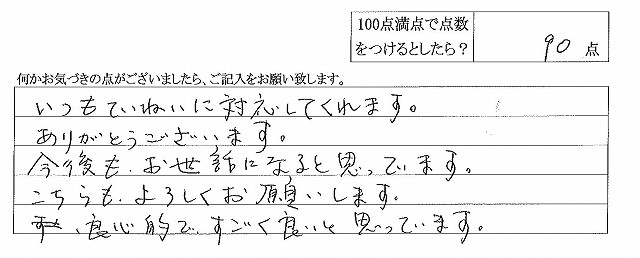 100点満点で点数
をつけるとしたら？
90 点
何かお気づきの点がございましたら、ご記入をお願い致します。
いつもていねいに対応してくれます。
ありがとうございます。
今後も、お世話になると思っています。
こちらも、よろしくお願いします。
、良心的で、すごく良いと思っています。